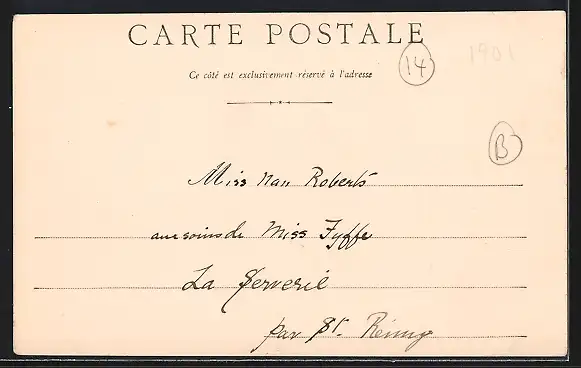 CARTE POSTALE
Ce côté est exclusivement réservé à l'adresse
14
1901
B
Miss Nan Roberts
aux soins de Miss Fyffe
La
par St. Remy